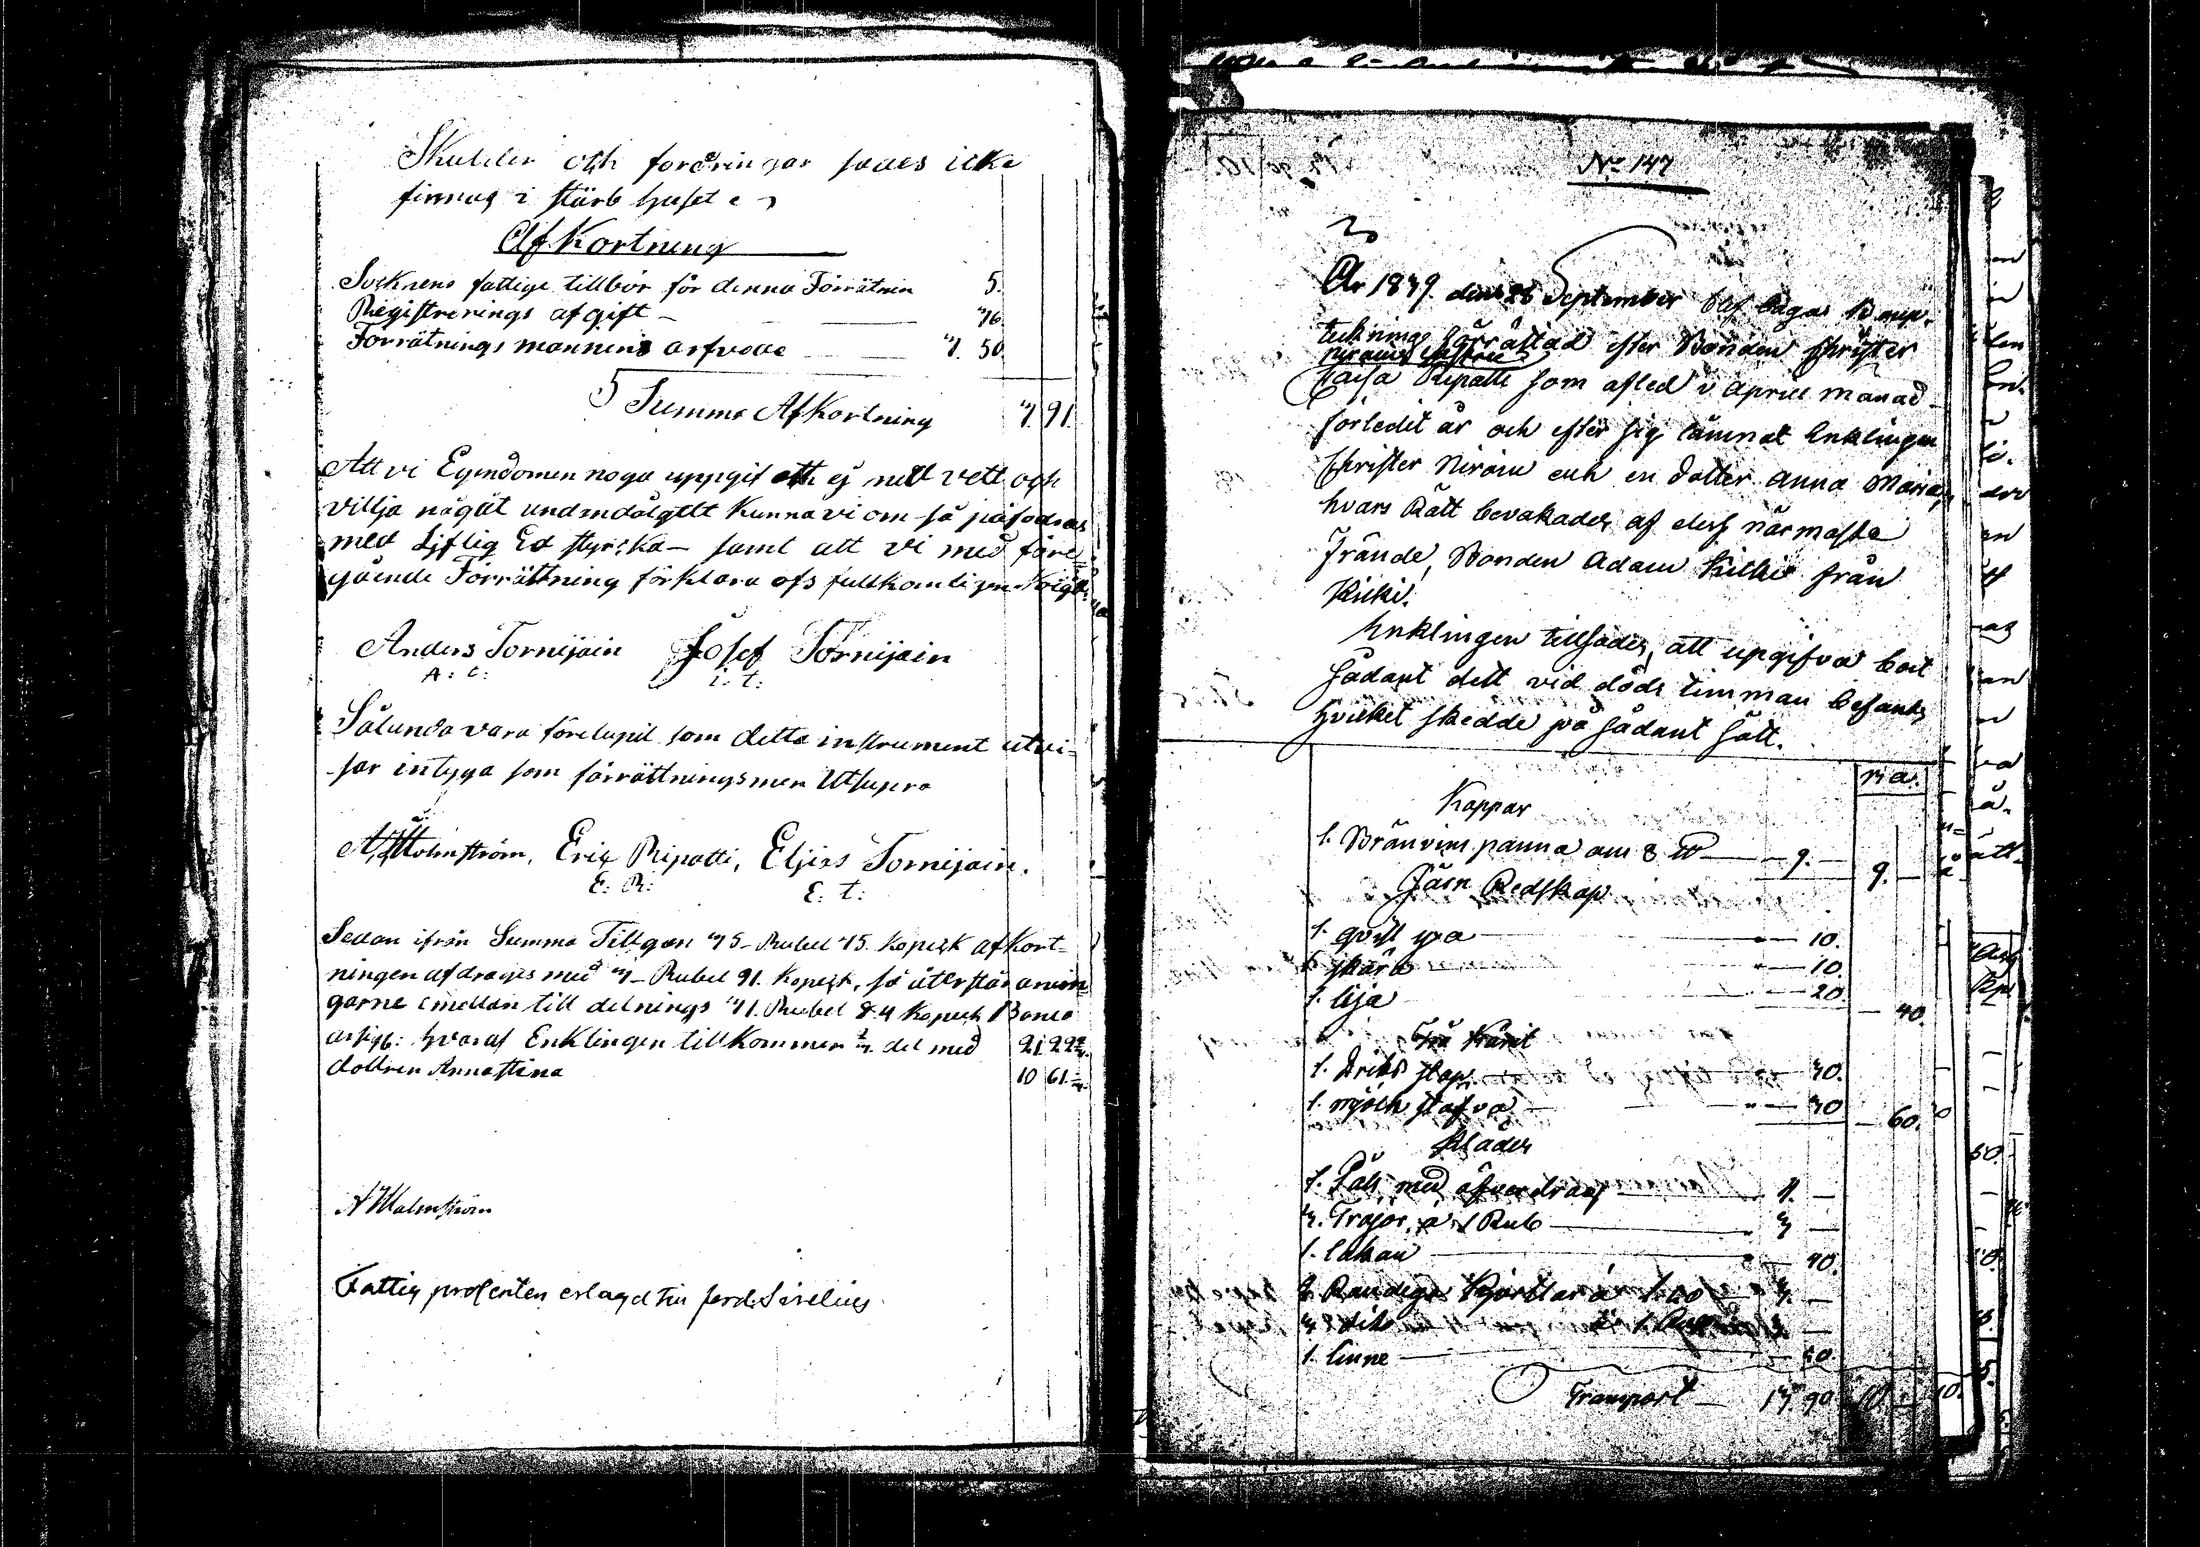 Skulder och fordringar sades icke
finnas i stärb huset
Afkortning
Socknens fattige tillbör för denna Förrätnin 5.
Registrerings afgift 36.
Förrätnings mannens arfvode 3. 50
Summa Afkortning 3 91
Att vi Egendomen noga uppgif och ej med vett och
vilja någåt undendålgtt kunna vi om så påfodras
med Liflig Ed styrcka – samt att vi med före
gående Förrättning förklara ofs fullkomligen Nöigda
Anders Tornijain Josef Tornijain
A: t: i: t:
Sålunda vara förelupit som detta instrument utvi-
sar intyga som förrättningsmen Utsupra
A Malmström, Eric Ripatti, Eljias Tornijain.
E: R: E: t:
Sedan ifrån Summa Tillgån 35 Rubel 75 kopeck afkort-
ningen afdrages med 3 Rubel 91. Kopeck, så återstår arvin
garne emellan till delnings 31. Rubel 84 Kopeck Banco
assigb: hvaraf Enklingen tillkommer 2/3 del med 21 22 2/3.
dottren Annastina 10 61 1/3
A Malmström
Fattig prosenten erlagd till ferd. Sirelius
No 147
År 1839 den 28 September blef laga Boupp-
tekning förrättad efter Bonden Christer
Niroins hustru
Caisa Ripatti som afled i April månad
förledit år och efter sig lämnat Enklingen
Christer Niroin och en dotter Anna Maria,
hvars Rätt bevakades af dess närmaste
Frände, Bonden Adam Kilki från
Kilki.
Enklingen tillsades, att upgifva boet
sådant dett vid döds timman befants
hvilket skedde på sådant sätt.
Koppar
1. Bränvins panna om 8 ℔ 9. 9.
Järn Redskap
1. qvist yxa 10.
1 skära 10.
1. lija 20. 40.
Trä Käril
1. Dricks stop 30.
1. mjölk stäfva 30 60.
Kläder
1. Päls med öfverdrag 4.
3. Tröjor, a 1 Rub 3
1. lakan 40.
2. Randiga Kjortlar á 1.50 3.
3 dito á 1 Rub 3
1. linne 50
Transport 13 90 10